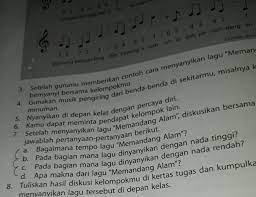 3. Setelah gurumu memberikan contoh cara menyanyikan lagu "Meman
bernyanyi bersama kelompokmu.
4. Gunakan musik pengiring dari benda-benda di sekitarmu, misalnya k
minuman.
5. Nyanyikan di depan kelas dengan percaya diri.
6. Kamu dapat meminta pendapat kelompok lain.
7. Setelah menyanyikan lagu "Memandang Alam", diskusikan bersama
jawablah pertanyaan-pertanyaan berikut.
a. Bagaimana tempo lagu "Memandang Alam"?
b. Pada bagian mana lagu dinyanyikan dengan nada tinggi?
c. Pada bagian mana lagu dinyanyikan dengan nada rendah?
d. Apa makna dari lagu "Memandang Alam"?
8. Tuliskan hasil diskusi kelompokmu di kertas tugas dan kumpulka
menyanyikan lagu tersebut di depan kelas.